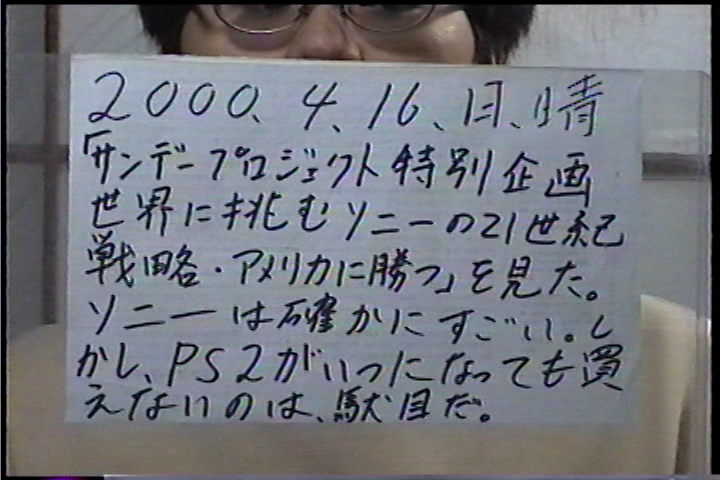 2000、4、16、日、晴
「サンデープロジェクト特別企画
世界に挑むソニーの21世紀
戦略・アメリカに勝つ」を見た。
ソニーは確かにすごい。し
かし、PS2がいつになっても買
えないのは、駄目だ。